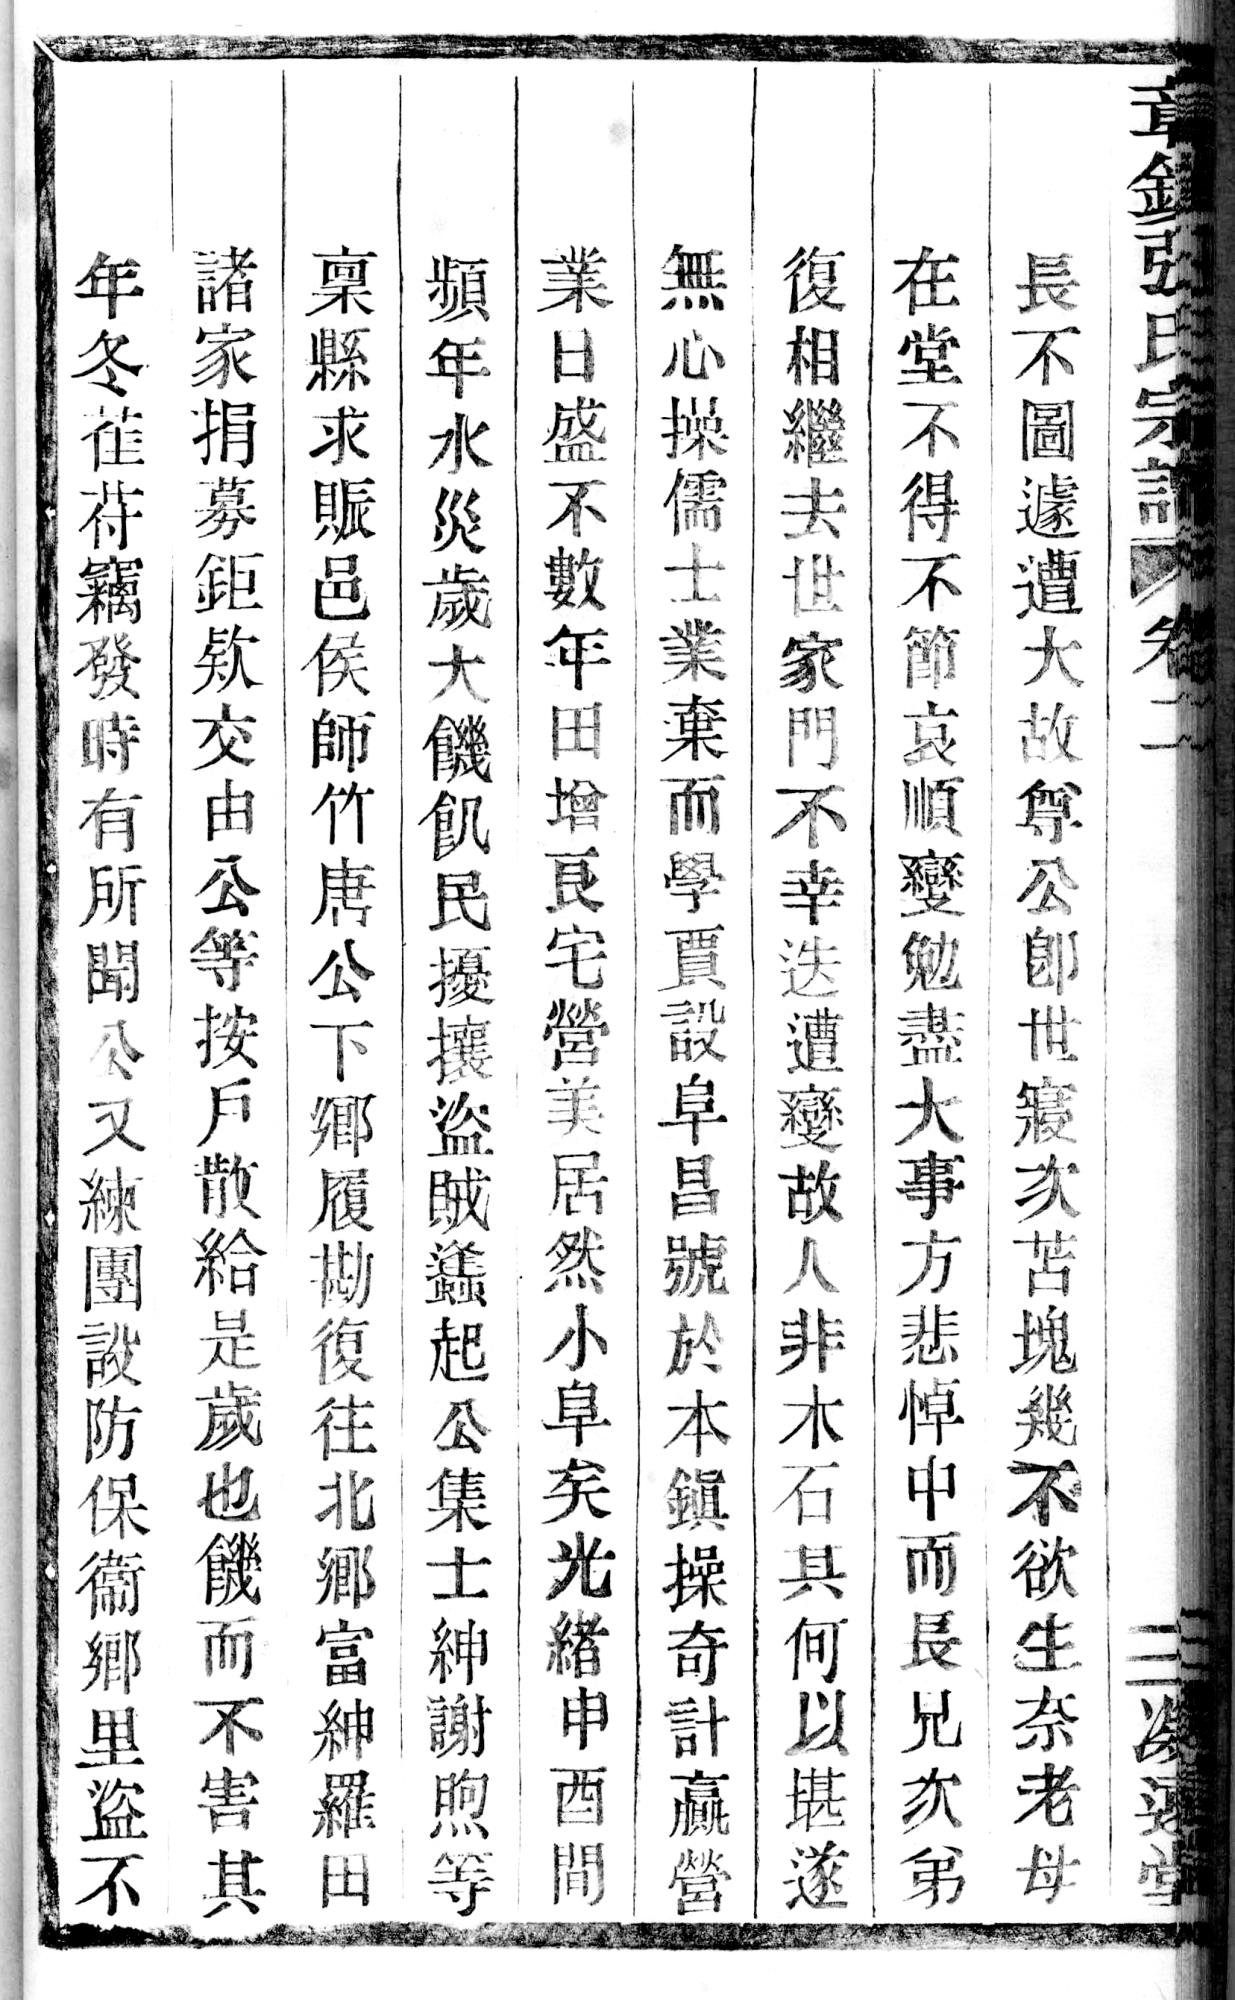 長不圖遽遭大故尊公卽世寢次苫塊幾不欲生奈老母
在堂不得不節哀順變勉盡大事方悲悼中而長兄次弟
復相繼去世家門不幸迭遭變故人非木石其何以堪遂
無心操儒士業棄而學賈設阜昌號於本鎭操奇計贏營
業日盛不數年田增良宅營美居然小阜矣光緖申酉間
頻年水災歲大饑飢民擾攘盜賊蠭起公集士紳謝煦等
稟縣求賑邑侯師竹唐公下鄉履勘復往北鄉富紳羅田
諸家捐募鉅欵交由公等按戶散給是歲也饑而不害其
年冬萑苻竊發時有所聞公又練團設防保衞鄉里盜不